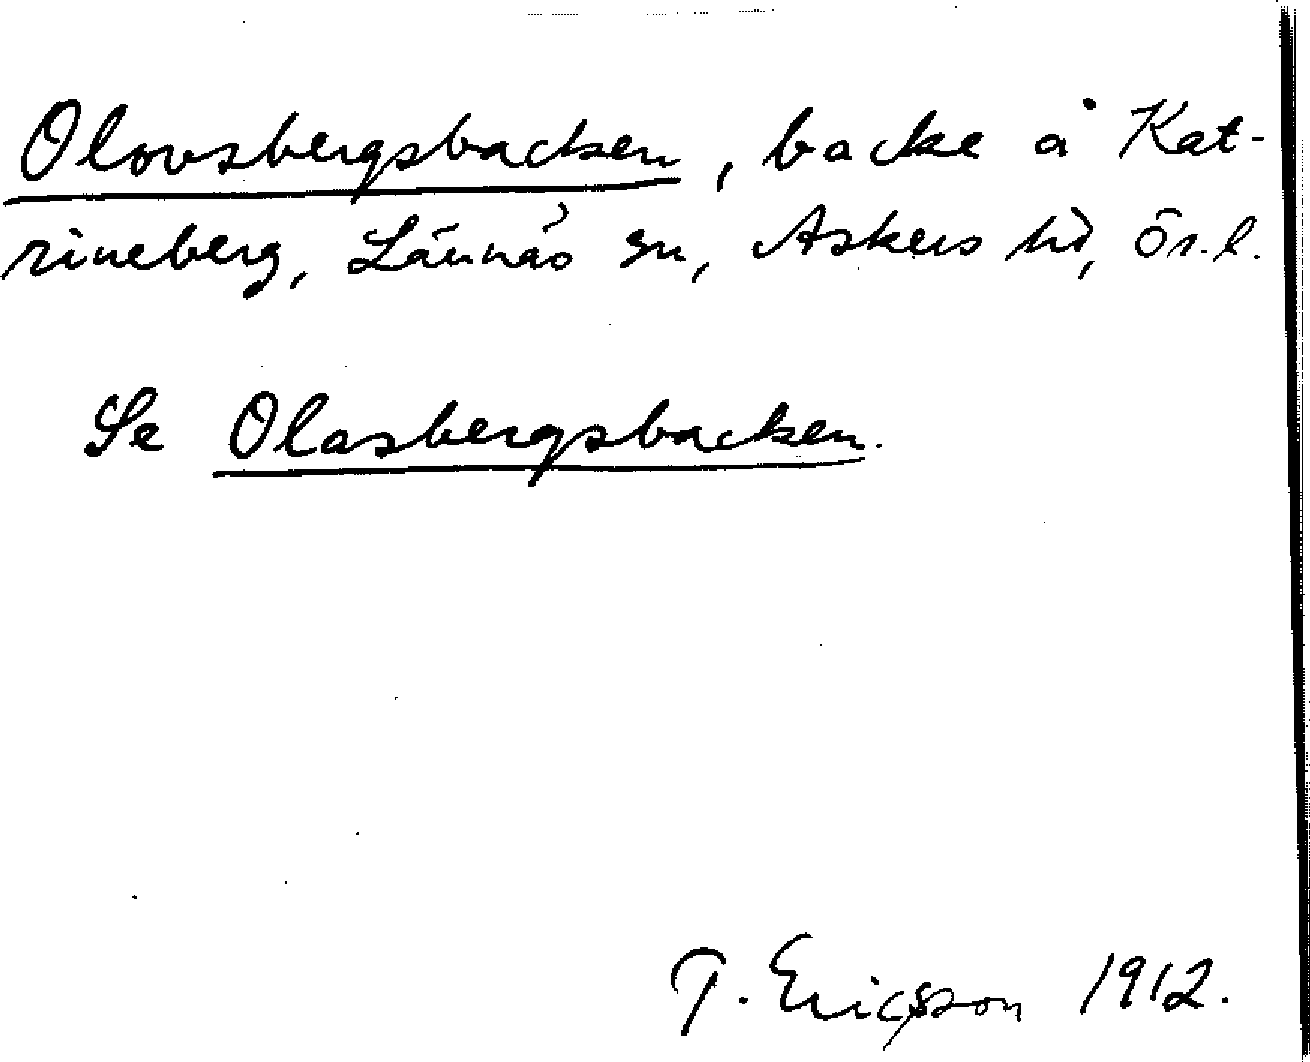 Olovsbergsbacken, backe å Kat-
rineberg, Lännäs sn, Askers hd, Ör. l.
Se Olasbergsbacken.
T. Ericsson 1912.